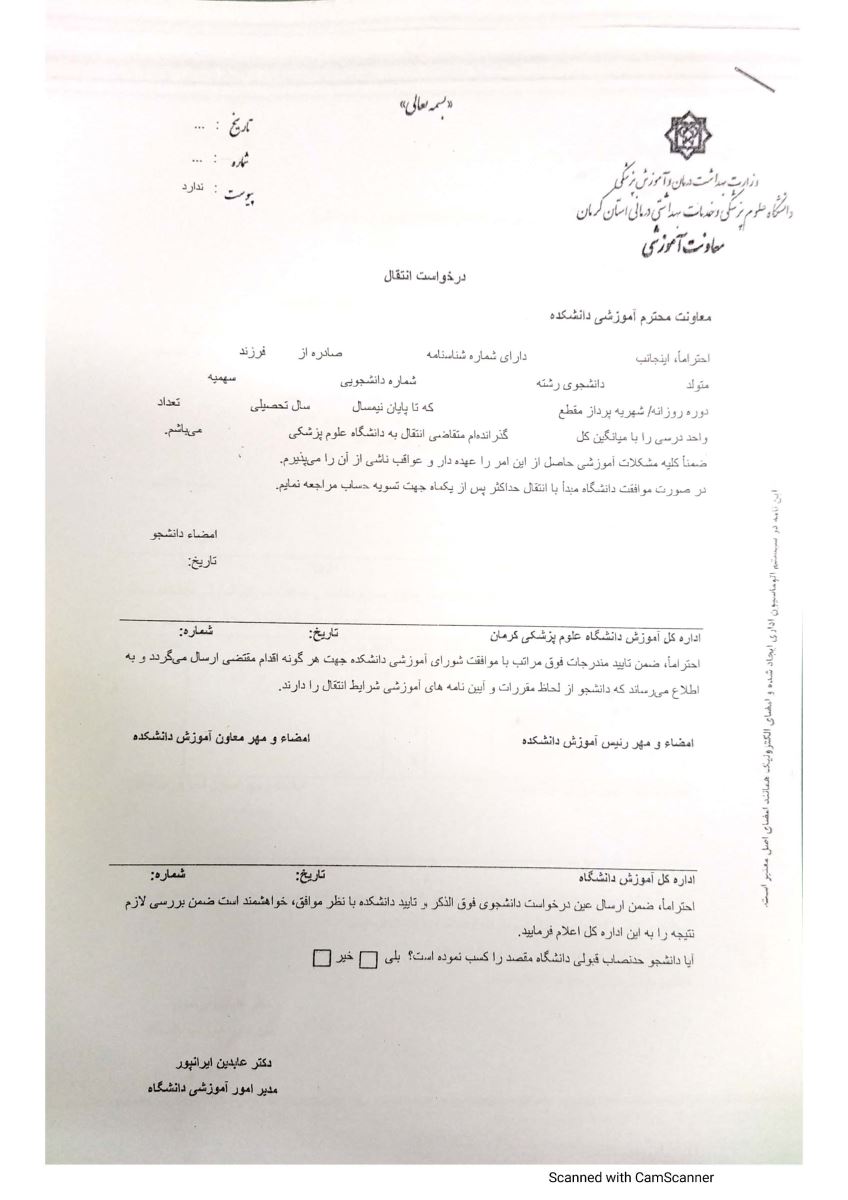 «بسمه تعالی»
تاریخ : ...
شماره : ...
پیوست : ندارد
وزارت بهداشت درمان و آموزش پزشکی
دانشگاه علوم پزشکی و خدمات بهداشتی درمانی استان کرمان
معاونت آموزشی
درخواست انتقال
معاونت محترم آموزشی دانشکده
احتراماً، اینجانب دارای شماره شناسنامه صادره از فرزند
متولد دانشجوی رشته شماره دانشجویی سهمیه
دوره روزانه/ شهریه پرداز مقطع که تا پایان نیمسال سال تحصیلی تعداد
واحد درسی را با میانگین کل گذرانده‌ام متقاضی انتقال به دانشگاه علوم پزشکی می‌باشم.
ضمناً کلیه مشکلات آموزشی حاصل از این امر را عهده دار و عواقب ناشی از آن را می‌پذیرم.
در صورت موافقت دانشگاه مبدأ با انتقال حداکثر پس از یکماه جهت تسویه حساب مراجعه نمایم.
امضاء دانشجو
تاریخ:
اداره کل آموزش دانشگاه علوم پزشکی کرمان تاریخ: شماره:
احتراماً، ضمن تایید مندرجات فوق مراتب با موافقت شورای آموزشی دانشکده جهت هر گونه اقدام مقتضی ارسال می‌گردد و به
اطلاع می‌رساند که دانشجو از لحاظ مقررات و آیین نامه های آموزشی شرایط انتقال را دارند.
امضاء و مهر رئیس آموزش دانشکده امضاء و مهر معاون آموزش دانشکده
اداره کل آموزش دانشگاه تاریخ: شماره:
احتراماً، ضمن ارسال عین درخواست دانشجوی فوق الذکر و تایید دانشکده با نظر موافق، خواهشمند است ضمن بررسی لازم
نتیجه را به این اداره کل اعلام فرمایید.
آیا دانشجو حدنصاب قبولی دانشگاه مقصد را کسب نموده است؟ بلی خیر
دکتر عابدین ایرانپور
مدیر امور آموزشی دانشگاه
این نامه در سیستم اتوماسیون اداری ایجاد شده و امضای الکترونیک همانند امضای اصل معتبر است.
Scanned with CamScanner